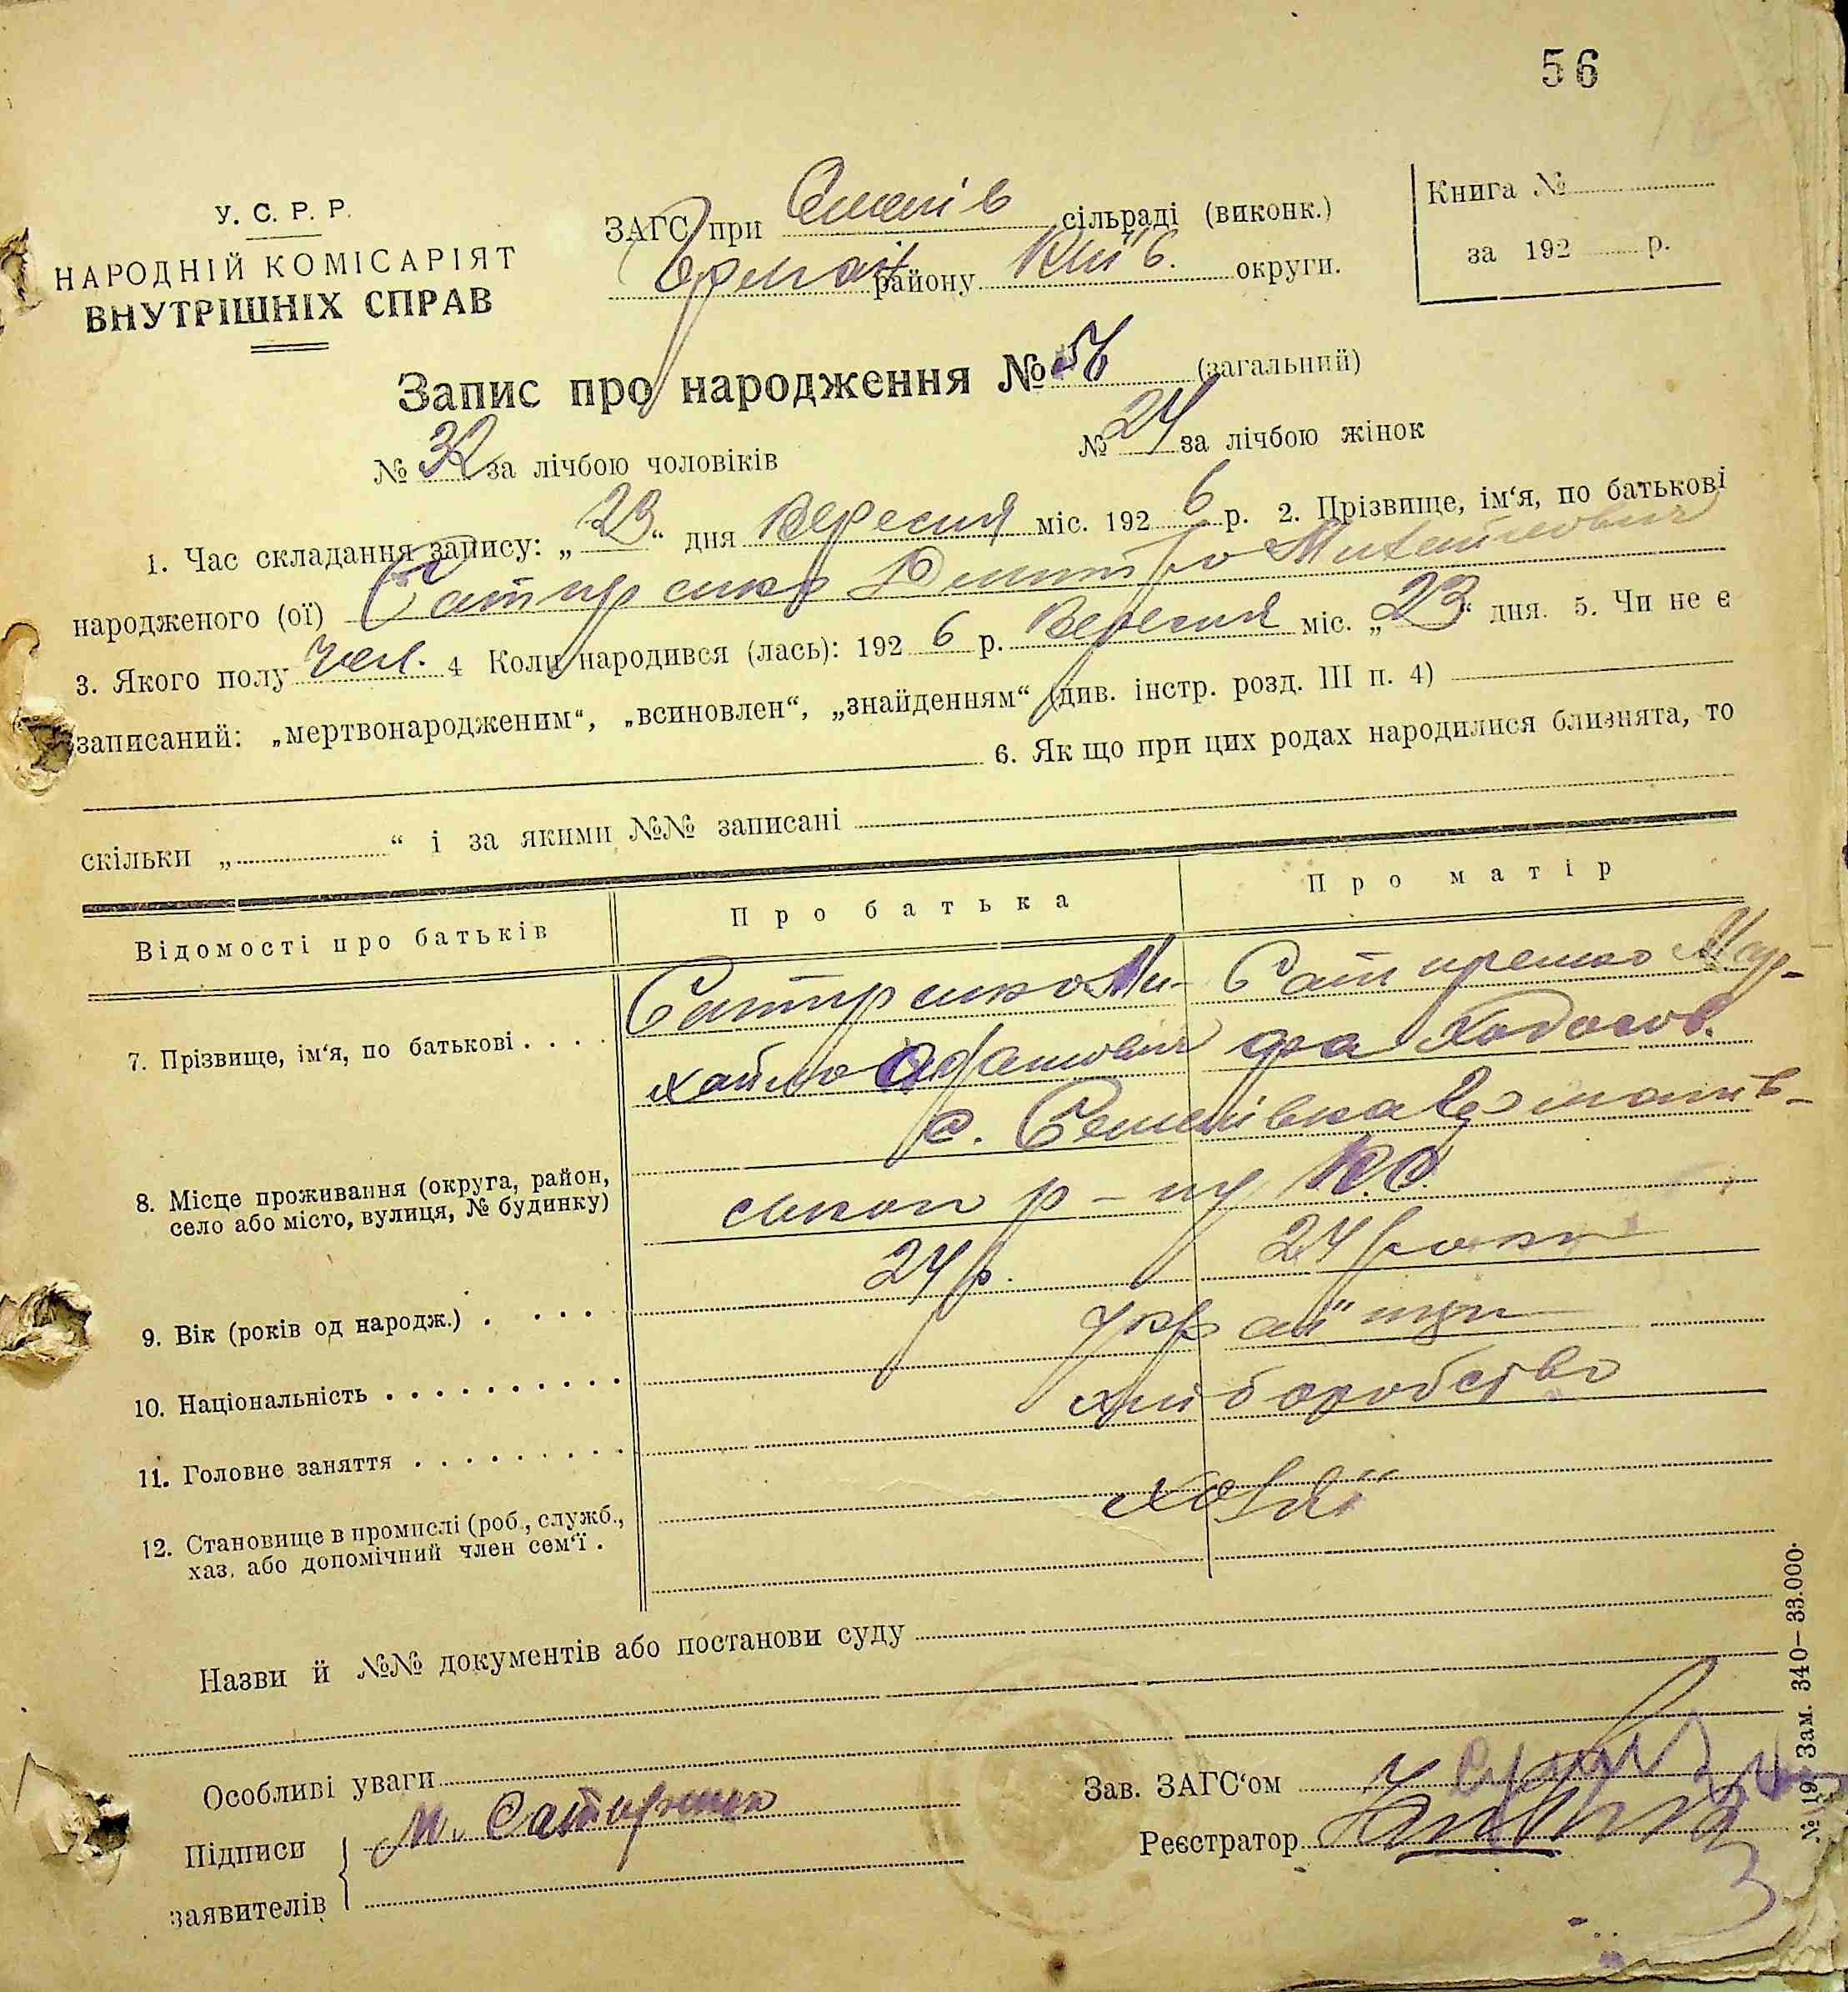 56
У. С. Р. Р.
НАРОДНІЙ КОМІСАРІЯТ
ВНУТРІШНІХ СПРАВ
ЗАГС при Семенів сільраді (виконк.)
району Київ. округи.
Книга №
за 192 р.
Запис про народження № 56 (загальний)
№ 32 за лічбою чоловіків
№ 24 за лічбою жінок
1. Час складання запису: „23“ дня Вересня міс. 1926 р. 2. Прізвище, ім‘я, по батькові
народженого (ої) Сатиренко Дмитро Михайлович
3. Якого полу чол. 4 Коли народився (лась): 1926 р. Вересня міс. „23“ дня. 5. Чи не є
записаний: „мертвонародженим“, „всиновлен“, „знайденням“ (див. інстр. розд. III п. 4)
6. Як що при цих родах народилися близнята, то
скільки „ “ і за якими №№ записані
Відомості про батьків
Про батька
Про матір
7. Прізвище, ім‘я, по батькові . . . .
Сатиренко Ми-
хайло Афанович
Сатиренко Мар-
фа Ходосов.
8. Місце проживання (округа, район,
село або місто, вулиця, № будинку)
с. Семенівка Германів-
ськой р-ну К.О.
9. Вік (років од народж.) . . . .
24 р.
24 роки
10. Національність . . . . . . . . . .
українці
11. Головне заняття . . . . . . . . .
хліборобство
12. Становище в промислі (роб., служб.,
хаз. або допомічний член сем‘ї .
Назви й №№ документів або постанови суду
Особливі уваги
Підписи
заявителів
М. Сатиренко
Зав. ЗАГС‘ом
Реєстратор
№ 19 Зам. 340–33.000.